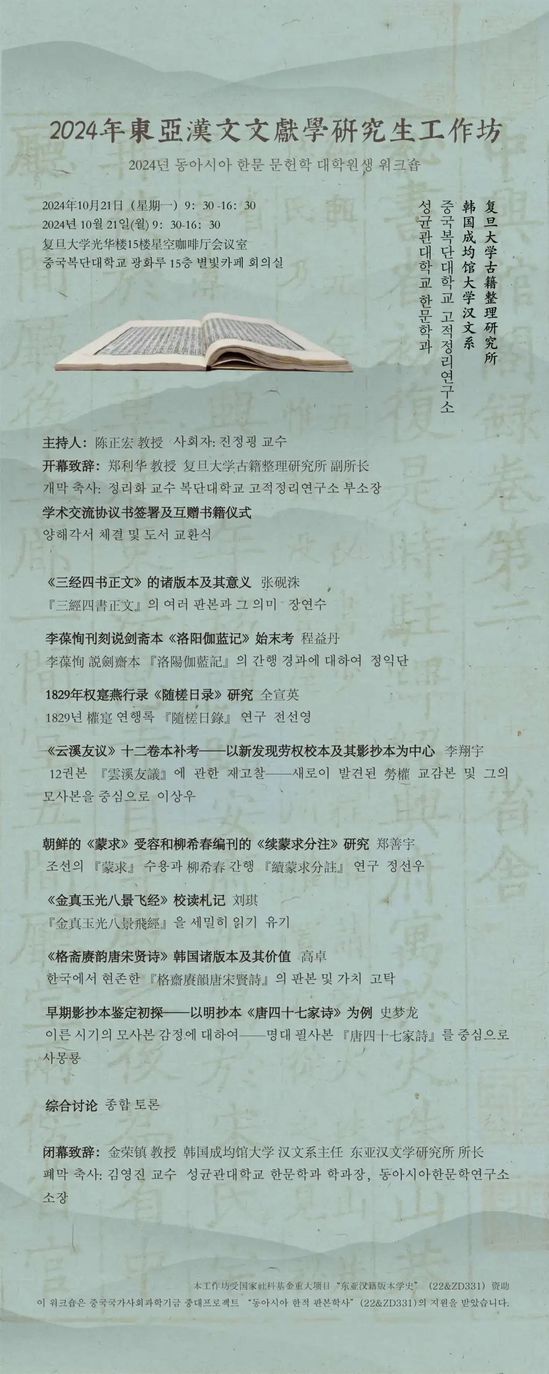 2024年東亞漢文文獻學研究生工作坊
2024년 동아시아 한문 문헌학 대학원생 워크숍
2024年10月21日（星期一）9：30 -16：30
2024년 10월 21일(월) 9：30-16：30
复旦大学光华楼15楼星空咖啡厅会议室
중국복단대학교 광화루 15층 별빛카페 회의실
复旦大学古籍整理研究所
韩国成均馆大学汉文系
중국복단대학교 고적정리연구소
성균관대학교 한문학과
主持人：陈正宏 教授 사회자: 진정굉 교수
开幕致辞：郑利华 教授 复旦大学古籍整理研究所 副所长
개막 축사: 정리화 교수 복단대학교 고적정리연구소 부소장
学术交流协议书签署及互赠书籍仪式
양해각서 체결 및 도서 교환식
《三经四书正文》的诸版本及其意义 张砚洙
『三經四書正文』의 여러 판본과 그 의미 장연수
李葆恂刊刻说剑斋本《洛阳伽蓝记》始末考 程益丹
李葆恂 說劍齋本 『洛陽伽藍記』의 간행 경과에 대하여 정익단
1829年权寔燕行录《随槎日录》研究 全宣英
1829년 權寔 연행록 『隨槎日錄』 연구 전선영
《云溪友议》十二卷本补考——以新发现劳权校本及其影抄本为中心 李翔宇
12권본 『雲溪友議』에 관한 재고찰——새로이 발견된 勞權 교감본 및 그의
모사본을 중심으로 이상우
朝鲜的《蒙求》受容和柳希春编刊的《续蒙求分注》研究 郑善宇
조선의 『蒙求』 수용과 柳希春 간행 『續蒙求分註』 연구 정선우
《金真玉光八景飞经》校读札记 刘琪
『金真玉光八景飛經』을 세밀히 읽기 유기
《格斋赓韵唐宋贤诗》韩国诸版本及其价值 高卓
한국에서 현존한 『格齋賡韻唐宋賢詩』의 판본 및 가치 고탁
早期影抄本鉴定初探——以明抄本《唐四十七家诗》为例 史梦龙
이른 시기의 모사본 감정에 대하여——명대 필사본 『唐四十七家詩』를 중심으로
사몽룡
综合讨论 종합 토론
闭幕致辞：金荣镇 教授 韩国成均馆大学 汉文系主任 东亚汉文学研究所 所长
폐막 축사: 김영진 교수 성균관대학교 한문학과 학과장, 동아시아한문학연구소
소장
本工作坊受国家社科基金重大项目“东亚汉籍版本学史”（22&ZD331）资助
이 워크숍은 중국국가사회과학기금 중대프로젝트 “동아시아 한적 판본학사”(22&ZD331)의 지원을 받았습니다.